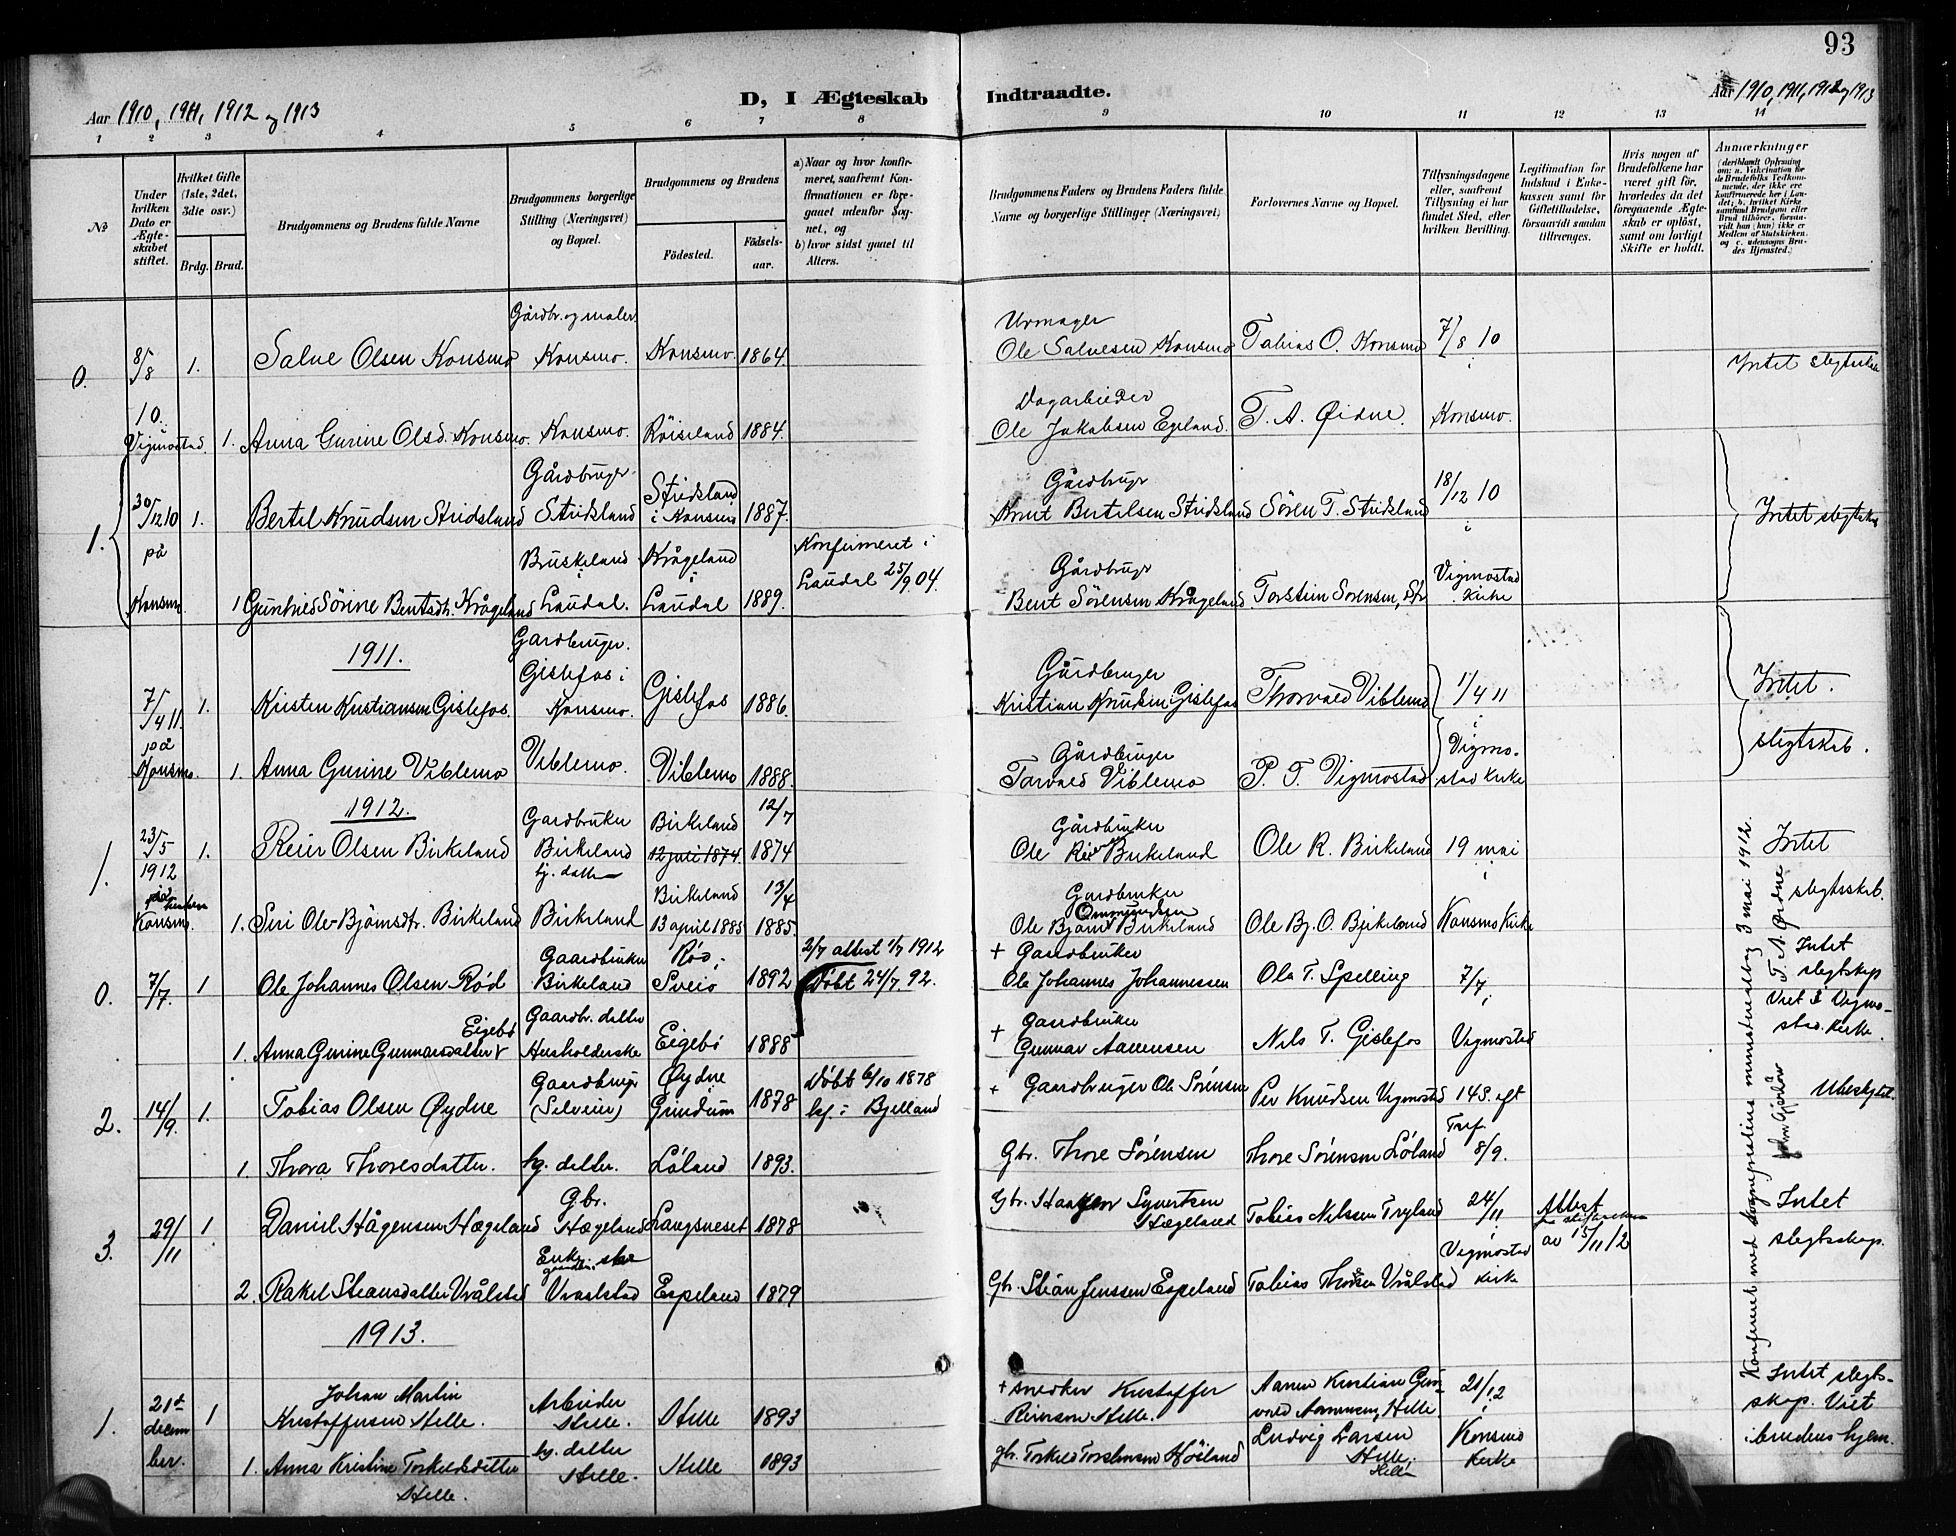 93
Aar 1910, 1911, 1912 og 1913
D, I Ægteskab Indtraadte.
Aar 1910, 1911, 1912 og 1913
1 2 3 4 5 6 7 8 9 10 11 12 13 14
No
Under hvilken Dato er Ægteskabet stiftet.
Hvilket Gifte (1ste, 2det, 3die osv.)
Brdg. Brud.
Brudgommens og Brudens fulde Navne
Brudgommens borgerlige Stilling (Næringsvei) og Bopæl.
Brudgommens og Brudens
Fødested.
Fødselsaar.
a) Naar og hvor konfirmeret, saafremt Konfirmationen er foregaaet udenfor Sognet, og
b) hvor sidst gaaet til Alters.
Brudgommens Faders og Brudens Faders fulde Navne og borgerlige Stillinger (Næringsvei)
Forlovernes Navne og Bopæl.
Tillysningsdagene eller, saafremt Tillysning ei har fundet Sted, efter hvilken Bevilling.
Legitimation for Indskud i Enkekassen samt for Giftetilladelse, forsaavidt saadan tiltrænges.
Hvis nogen af Brudefolkene har været gift før, hvorledes da det foregaaende Ægteskab er opløst, samt om lovligt Skifte er holdt.
Anmærkninger
(deriblandt Oplysning om: a. Vakcination for de Brudefolks Vedkommende, der ikke ere konfirmerede her i Landet; b. hvilket Kirkesamfund Brudgom eller Brud tilhører, forsaavidt han (hun) ikke er Medlem af Statskirken, og c. udensogns Brudes Hjemsted.)
0. 8/8 1. Salve Olsen Konsmo Gårdbr. og maler Konsmo. Konsmo. 1864. Urmager Ole Salvesen Konsmo Tobias O. Konsmo 7/8 10 i Intet slegtskab
10. Vigmostad 1. Anna Gurine Olsd. Konsmo. Konsmo. Röiseland 1884. Dagarbeider Ole Jakobsen Egeland. T. A. Øidne. Konsmo.
1. 30/12 10 1. Bertel Knudsen Stridsland Gårdbruger Stridsland Stridsland i Konsmo 1887. Gårdbruger Knut Bertelsen Stridsland Sören T. Stridsland 18/12 10 i Intet slegtskab
på Konsmo 1 Guntvedsörine Bentsdt. Krågeland Buskeland i Laudal. Krågeland i Laudal 1889. Konfirmeret i Laudal 25/9 04. Gårdbruger Bent Sörensen Krågeland Torstein Sorensen, Vigmostad Kirke
1911.
7/4 11. 1. Kristen Kristiansen Gislefos. Gardbruger. Gislefos i Konsmo. Gislefos 1886. Gårdbruger Kristian Knudsen Gislefos Thorvald Viblemo 1/4 11 i Intet.
på Konsmo. 1. Anna Gurine Viblemo Viblemo. Viblemo 1888. Gårdbruger Torvald Viblemo P. T. Vigmostad Vigmostad Kirke slegtskab.
1912.
1. 23/5 1912 1. Reier Olsen Birkeland Gardbruker Birkeland Birkeland 12 juli 1874. 12/7 1874 Gårdbruker Ole Reiersen Birkeland Ole R. Birkeland 19 mai i Intet
på Konsmo. 1. Siri Ole-Bjørnsdtr. Birkeland gj. datter Birkeland Birkeland 13 april 1885 13/4 1885. Gardbruker Ole Bjørn Ommundsen Birkeland Ole Bj. O. Birkeland Konsmo Kirke slegtskab.
0. 7/7. 1 Ole Johannes Olsen Rød Gaardbruker Birkeland Rød, Sveio 1892 2/7 attest 1/7 1912 Döbt 24/7. 92. + Gaardbruker Ole Johannes Johannessen Ola T. Spelling 7/7 i Intet slegtskap Viet i Vigmostad Kirke.
1. Anna Gurine Gunnarsdatter Eigebø Gaardbr. datter Husholderske Eigebö 1888 + Gaardbruker Gunnar Aanensen Nils T. Gislefos Vigmostad
2. 14/9. 1. Tobias Olsen Øydne Gaardbruger (Selveier) Øydne Grindum 1878 Döbt 6/10 1878 kf. i Bjelland + Gaardbruger Ole Sörensen Per Knudsen Vigmostad Ubeslegtet.
1. Thora Thoresdatter. hg. datter. Löland 1893. Gbr. Thore Sörensen Thore Sörensen Löland 8/9.
3. 29/11 1 Daniel Hågensen Hægeland Gbr. Hægeland Langsneset 1878 Gbr. Haagen Syvertsen Hægeland Tobias Nilssen Tryland 24/11 Attest av 15/11 12 Intet slegtskap.
2. Rakel Steansdatter Vrålstad Enke Vraalstad Espeland 1879 Gbr. Stean Jenssen Espeland Tobias Vrålstad Vigmostad Kirke
1913.
1. 21de decem ber. 1 Johan Martin Kristoffersen Stelle. Arbeider Stelle. Stelle 1893 + snedker Kristoffer Reiersen Stelle. 21/12 i Intet slegtskap. Viet
1. Anna Kristine Torkeldsdatter Stelle. hg. datter Stelle. Stelle 1893 gbr. Torkeld Høiland Ludvig Larsen Stelle. Konsmo Kirke i brudens hjem.
Konferert med sogneprestens ministerialbog 3 mai 1912. T. A. Øidne